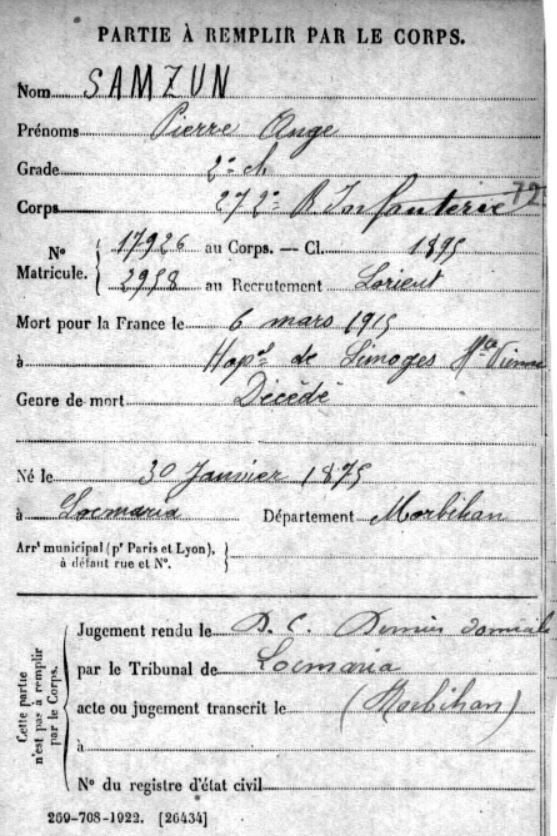 PARTIE À REMPLIR PAR LE CORPS.
Nom SAMZUN
Prénoms Pierre Ange
Grade 2e cl
Corps 272e R. Infanterie 72
No Matricule. { 17926 au Corps. — Cl. 1895
2958 au Recrutement Lorient
Mort pour la France le 6 mars 1915
à Hopal de Limoges Hte Vienne
Genre de mort Décédé
Né le 30 Janvier 1875
à Locmaria Département Morbihan
Arrt municipal (pr Paris et Lyon), }
à défaut rue et No.
Cette partie n'est pas à remplir par le Corps. {
Jugement rendu le D. C. Dernier domicile
par le Tribunal de Locmaria
acte ou jugement transcrit le (Morbihan)
à
No du registre d'état civil
269-708-1922. [26434]